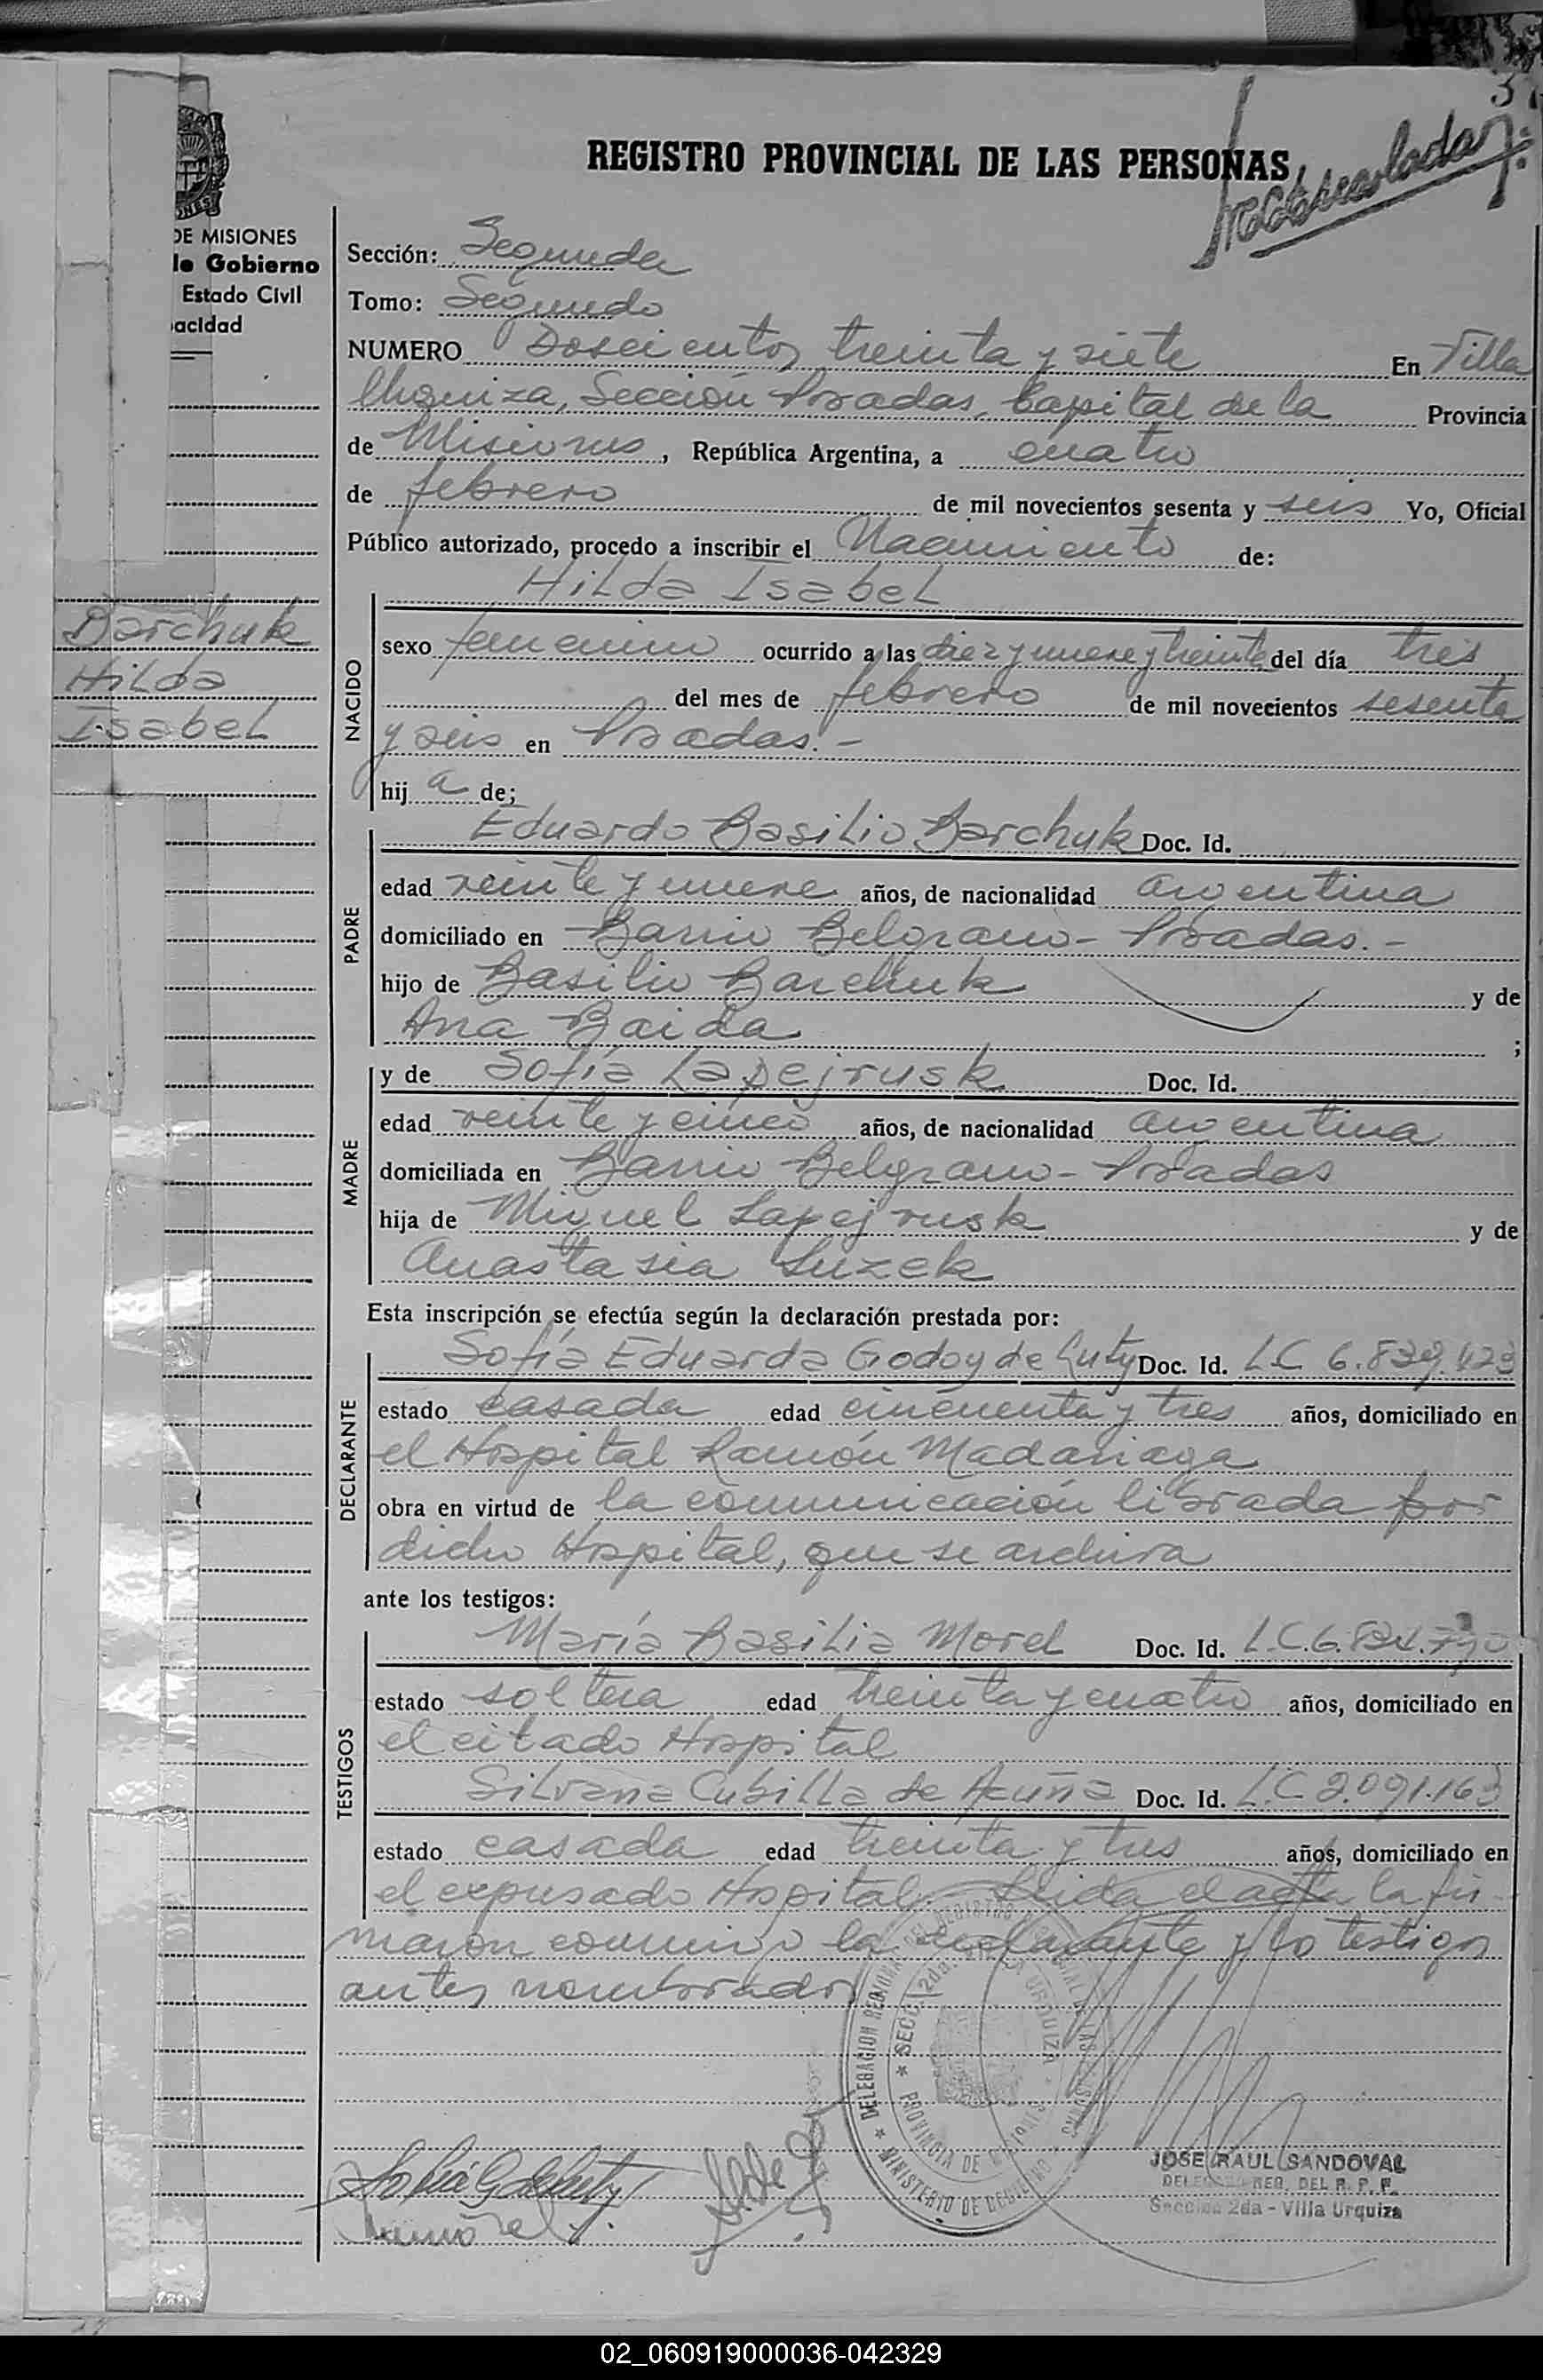 REGISTRO PROVINCIAL DE LAS PERSONAS
DE MISIONES
Gobierno
Estado Civil
acidad
Sección: Segunda
Tomo: Segundo
NUMERO Doscientos treinta y siete En Villa
Urquiza, Sección Posadas, Capital de la Provincia
de Misiones, República Argentina, a cuatro
de febrero de mil novecientos sesenta y seis Yo, Oficial
Público autorizado, procedo a inscribir el Nacimiento de:
Hilda Isabel
Barchuk
Hilda
Isabel
NACIDO
sexo femenino ocurrido a las diez y nueve y treinta del día tres
del mes de febrero de mil novecientos sesenta
y seis en Posadas.-
hij a de;
PADRE
Eduardo Basilio Barchuk Doc. Id.
edad veinte y nueve años, de nacionalidad argentina
domiciliado en Barrio Belgrano - Posadas.-
hijo de Basilio Barchuk y de
Ana Baida ;
MADRE
y de Sofía Lapejrusk Doc. Id.
edad veinte y cinco años, de nacionalidad argentina
domiciliada en Barrio Belgrano - Posadas
hija de Miguel Lapejrusk y de
Anastasia Luzek
Esta inscripción se efectúa según la declaración prestada por:
DECLARANTE
Sofía Eduarda Godoy de Luty Doc. Id. LC 6.839.423
estado casada edad cincuenta y tres años, domiciliado en
el Hospital Ramón Madariaga
obra en virtud de la comunicación librada por
dicho Hospital, que se archiva
ante los testigos:
TESTIGOS
María Basilia Morel Doc. Id. L.C.
estado soltera edad treinta y cuatro años, domiciliado en
el citado Hospital
Silvana Cubilla de Acuña Doc. Id. L.C 2.091.163
estado casada edad treinta y tres años, domiciliado en
el expresado Hospital. Leida el acta la fir-
maron conmigo la declarante y lo testigos
antes nombrados
DELEGACION REGIONAL DEL REGISTRO PROVINCIAL DE LAS PERSONAS
MINISTERIO DE GOBIERNO
SECC. 2da. URQUIZA
PROVINCIA DE MISIONES
JOSE RAUL SANDOVAL
REG. DEL R. P. P.
Sección 2da - Villa Urquiza
02_060919000036-042329